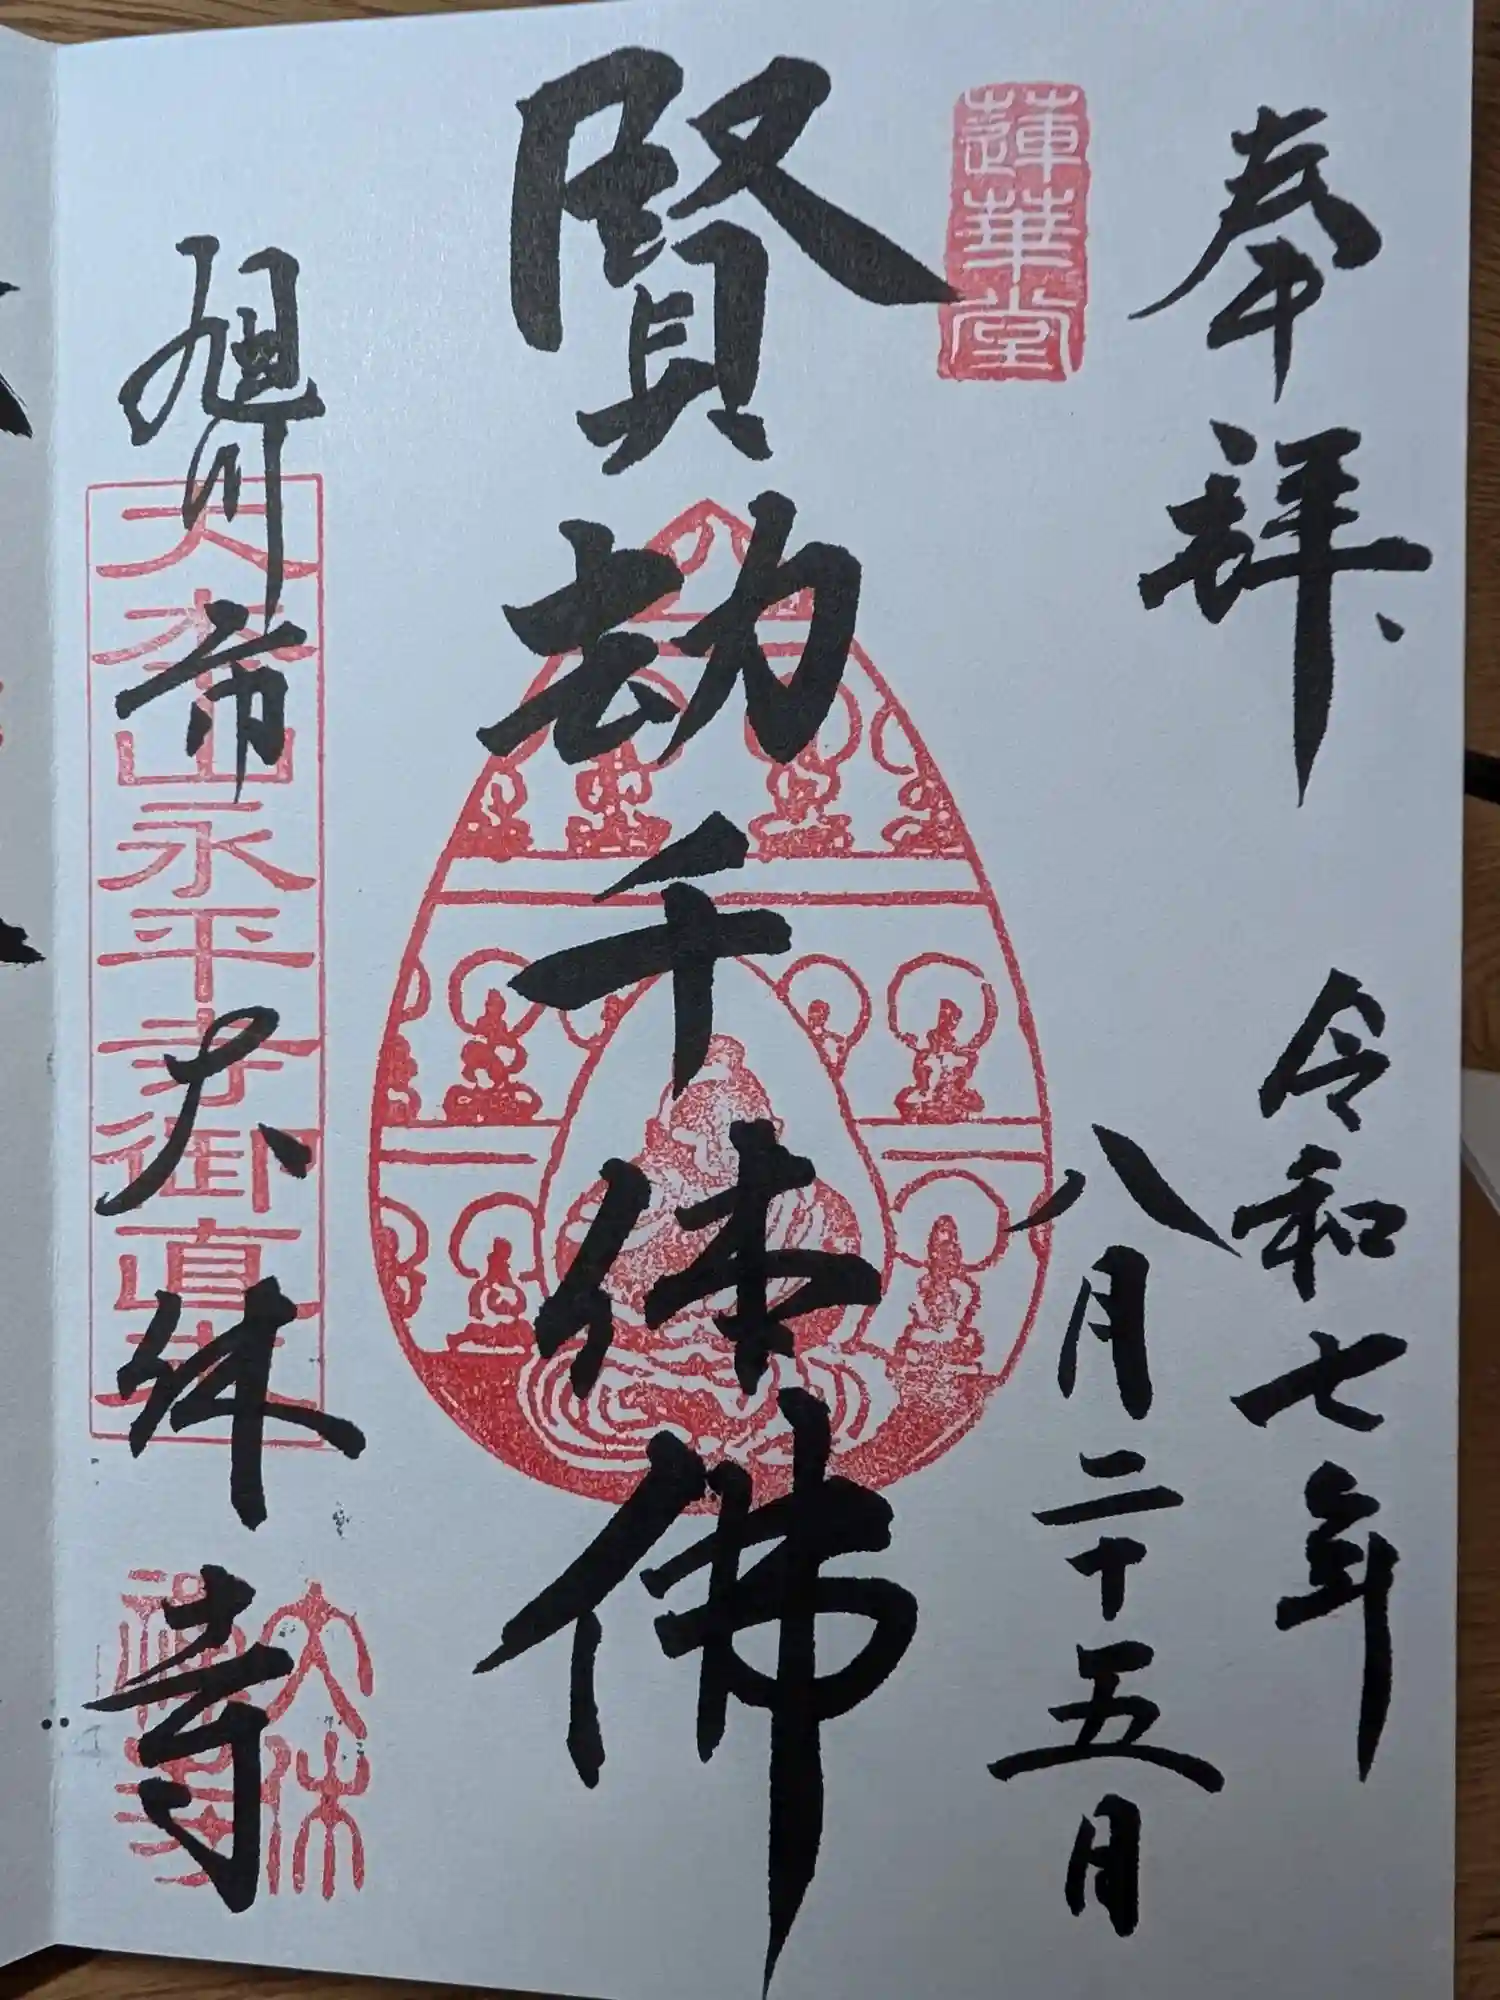 奉拝
令和七年
八月二十五日
蓮華堂
賢劫千体佛
旭川市 大休寺
大本山永平寺御直末
大休
禅寺